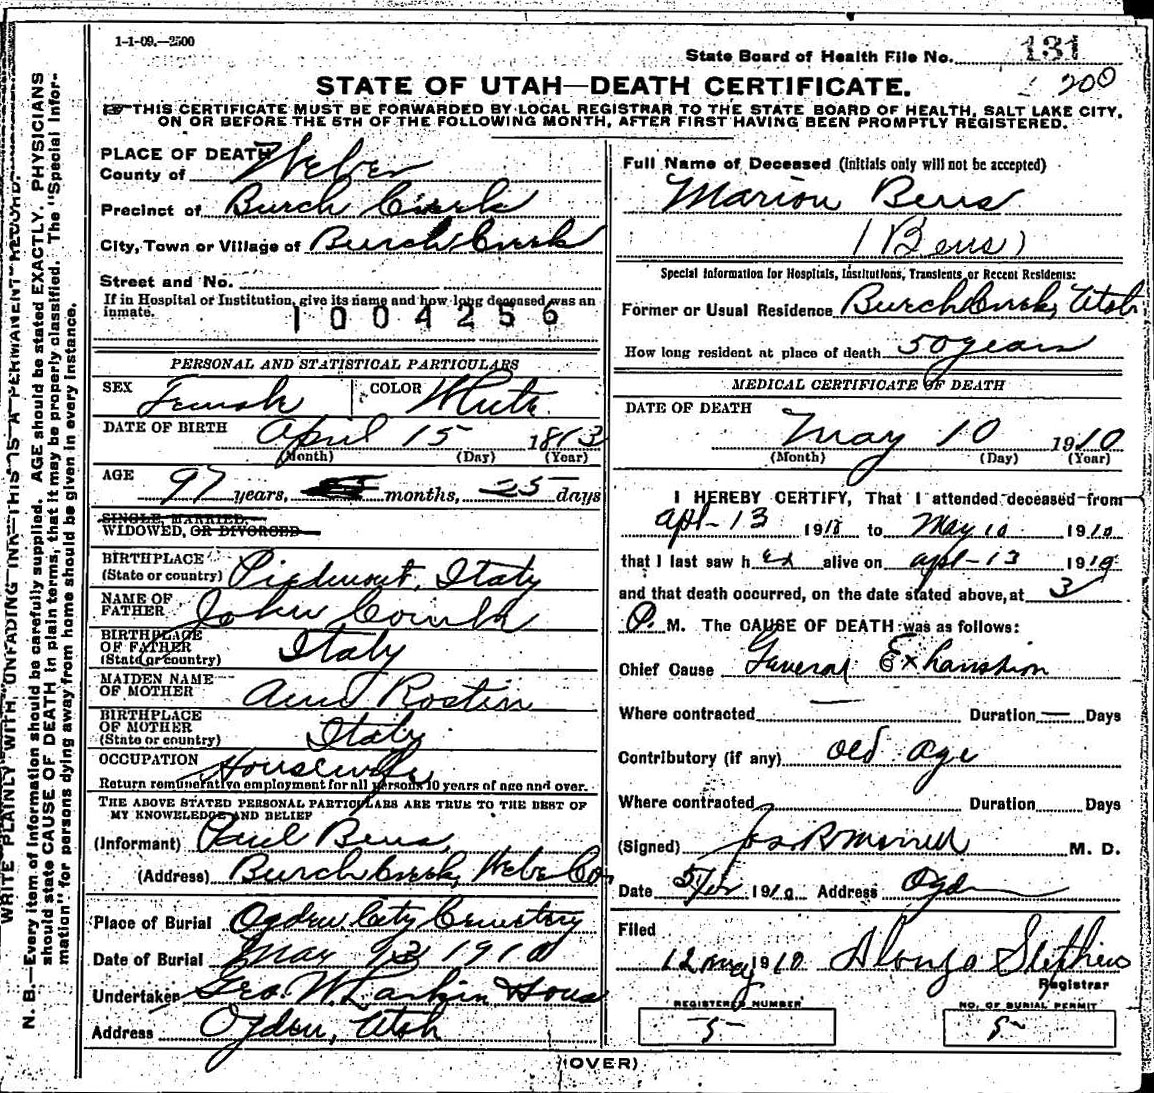 1-1-09.—2500
State Board of Health File No. 131
200
STATE OF UTAH—DEATH CERTIFICATE.
☞THIS CERTIFICATE MUST BE FORWARDED BY LOCAL REGISTRAR TO THE STATE BOARD OF HEALTH, SALT LAKE CITY,
ON OR BEFORE THE 5TH OF THE FOLLOWING MONTH, AFTER FIRST HAVING BEEN PROMPTLY REGISTERED.
WRITE PLAINLY WITH UNFADING INK—THIS IS A PERMANENT RECORD.
N. B.—Every item of information should be carefully supplied. AGE should be stated EXACTLY. PHYSICIANS
should state CAUSE OF DEATH in plain terms, that it may be properly classified. The "Special Infor-
mation" for persons dying away from home should be given in every instance.
PLACE OF DEATH
County of Weber
Precinct of Burch Creek
City, Town or Village of Burch Creek
Street and No.
If in Hospital or Institution, give its name and how long deceased was an
inmate.
1004256
PERSONAL AND STATISTICAL PARTICULARS
SEX Female COLOR White
DATE OF BIRTH April 15 1813
(Month) (Day) (Year)
AGE 97 years, months, 25 days
SINGLE, MARRIED,
WIDOWED, OR DIVORCED
BIRTHPLACE
(State or country) Piedmont, Italy
NAME OF
FATHER John
BIRTHPLACE
OF FATHER
(State or country) Italy
MAIDEN NAME
OF MOTHER Ann Rostin
BIRTHPLACE
OF MOTHER
(State or country) Italy
OCCUPATION Housewife
Return remunerative employment for all persons 10 years of age and over.
THE ABOVE STATED PERSONAL PARTICULARS ARE TRUE TO THE BEST OF
MY KNOWLEDGE AND BELIEF
(Informant) Paul Beus
(Address) Burch Creek, Weber Co
Place of Burial Ogden City Cemetery
Date of Burial May 1910
Undertaker Geo. W. Larkin & Sons
Address Ogden, Utah
Full Name of Deceased (Initials only will not be accepted)
Marion Beus
(Beus)
Special Information for Hospitals, Institutions, Transients or Recent Residents:
Former or Usual Residence Burch Creek, Utah
How long resident at place of death 50 years
MEDICAL CERTIFICATE OF DEATH
DATE OF DEATH
May 10 1910
(Month) (Day) (Year)
I HEREBY CERTIFY, That I attended deceased from
Apl-13 1910 to May 10 1910
that I last saw her alive on Apl-13 1910
and that death occurred, on the date stated above, at 3
P. M. The CAUSE OF DEATH was as follows:
Chief Cause General Exhaustion
Where contracted — Duration — Days
Contributory (if any) Old age
Where contracted Duration Days
(Signed) Jos R Morrell M. D.
Date 1910 Address Ogden
Filed
12 May 1910 Alonzo Stephens
Registrar
REGISTERED NUMBER
5
NO. OF BURIAL PERMIT
5
(OVER)